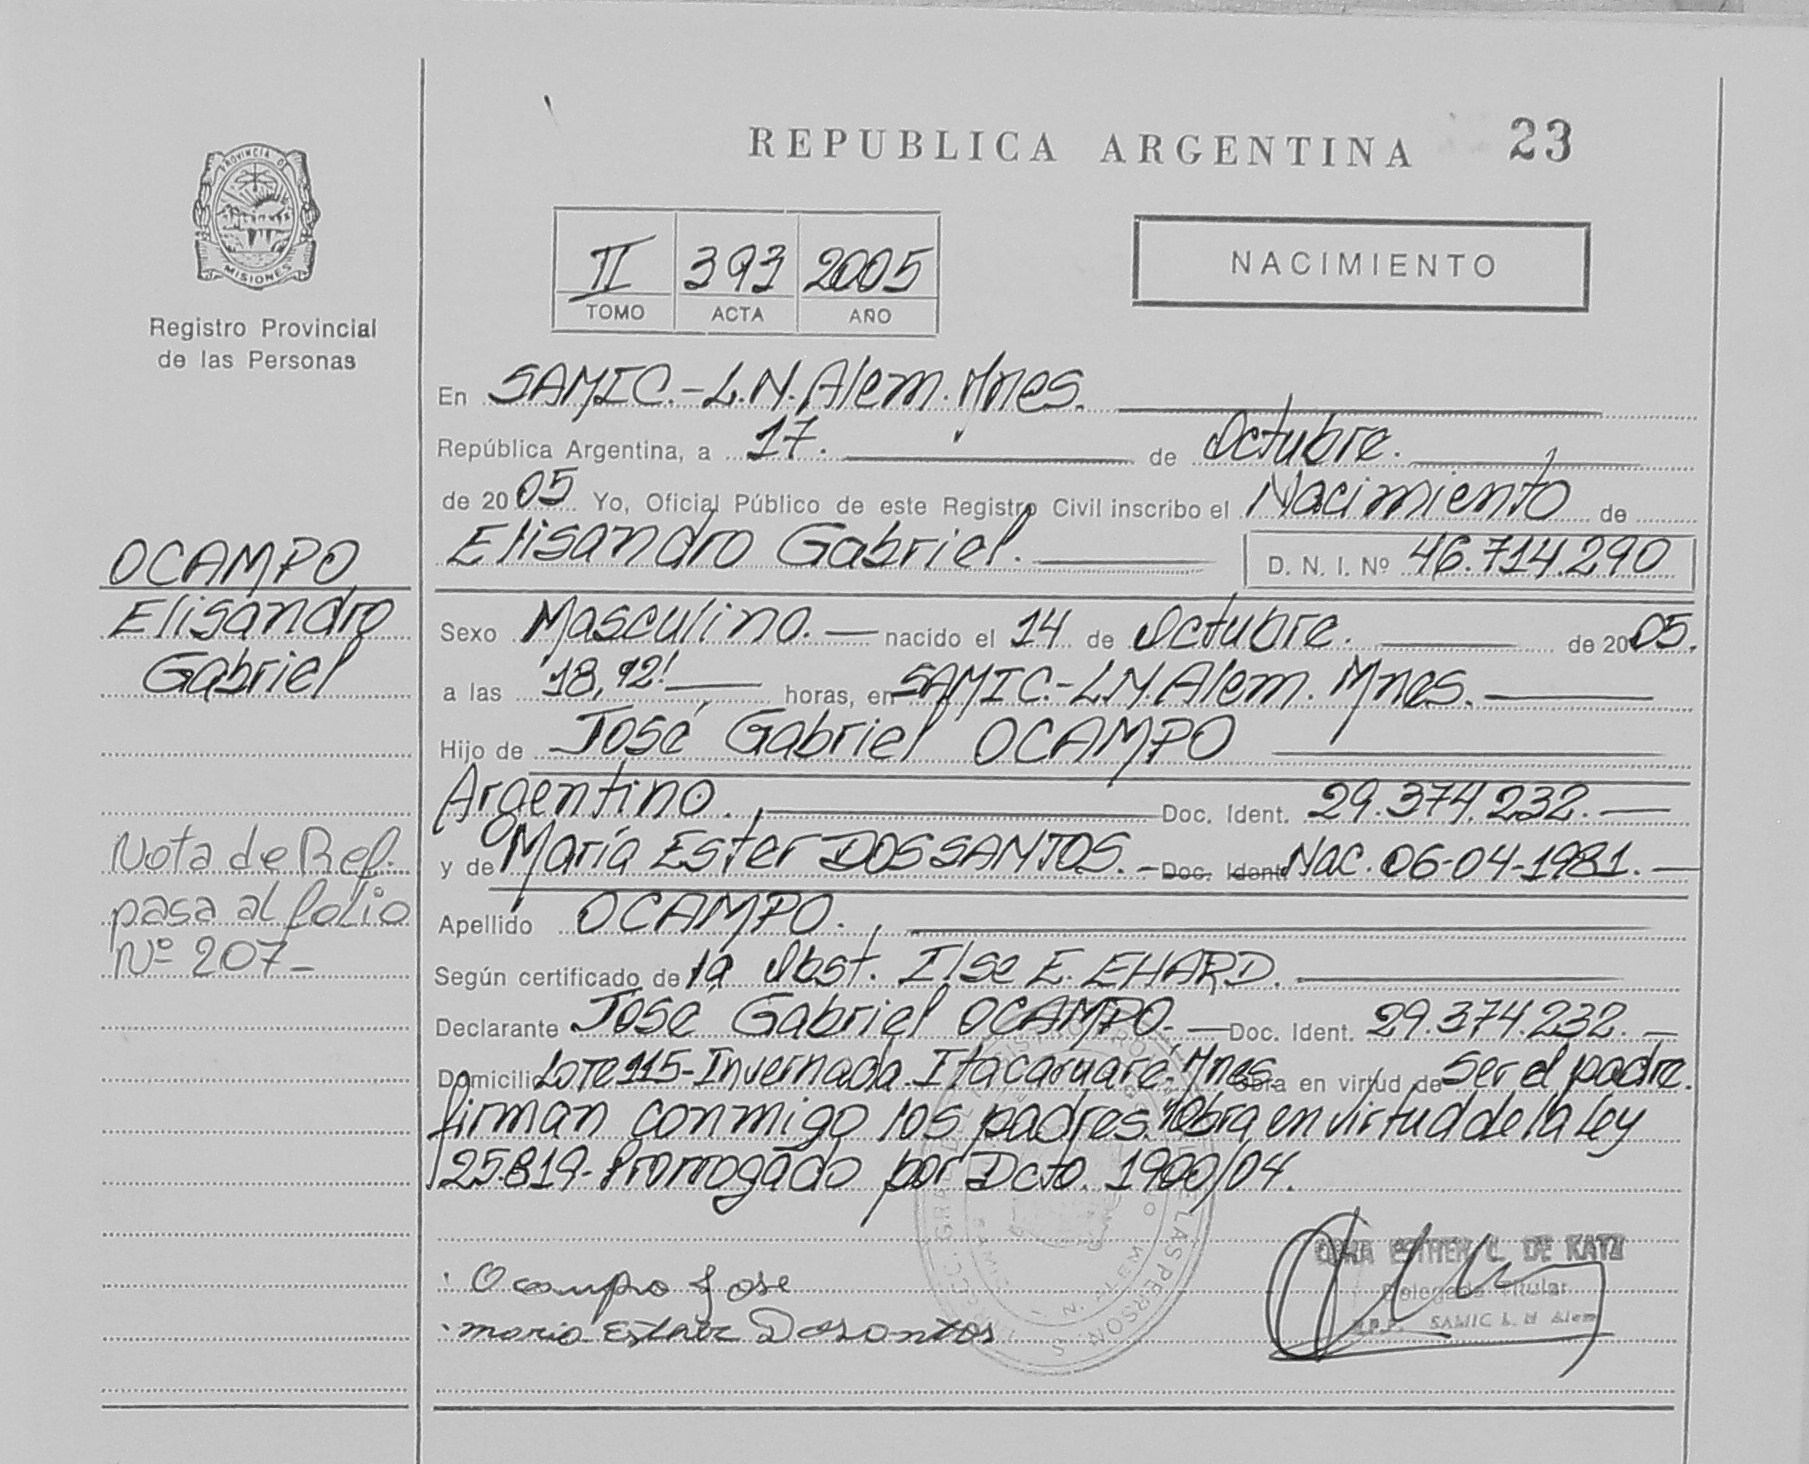 REPUBLICA ARGENTINA 23
PROVINCIA DE
MISIONES
Registro Provincial
de las Personas
II 393 2005
TOMO ACTA AÑO
NACIMIENTO
En SAMIC.-L.N.Alem.Mnes.
República Argentina, a 17. de Octubre.
de 2005 Yo, Oficial Público de este Registro Civil inscribo el Nacimiento de
Elisandro Gabriel. D. N. I. Nº 46.714.290
OCAMPO
Elisandro
Gabriel
Sexo Masculino. nacido el 14 de Octubre. de 2005.
a las 18, horas, en SAMIC.-L.N.Alem. Mnes.
Hijo de José Gabriel OCAMPO
Argentino. Doc. Ident. 29.374.232.-
y de María Ester DOS SANTOS.- Doc. Ident. Nac. 06-04-1981.-
Nota de Ref.
pasa al folio
Nº 207-
Apellido OCAMPO.
Según certificado de la Obst. Ilse E. EHARD.
Declarante José Gabriel OCAMPO.- Doc. Ident. 29.374.232.-
Domicilio Lote 115-Invernada-Itacaruaré-Mnes. Obra en virtud de Ser el padre.
firman conmigo los padres. Obra en virtud de la Ley
25.819-Prorrogado por Dcto. 1900/04.
Ocampo Jose
maria Ester Dosantos
ESTHER C. DE KATZ
Delegada Titular
R.P.P. SAMIC L. N Alem